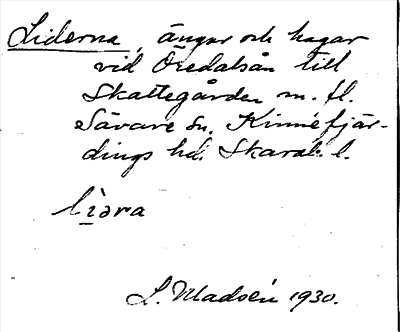 Liderna, ängar och hagar
vid Öredalsån till
Skattegården m. fl.
Sävare sn. Kinnefjär-
dings hd. Skarab. l.
lìəra
L. Madsén 1930.